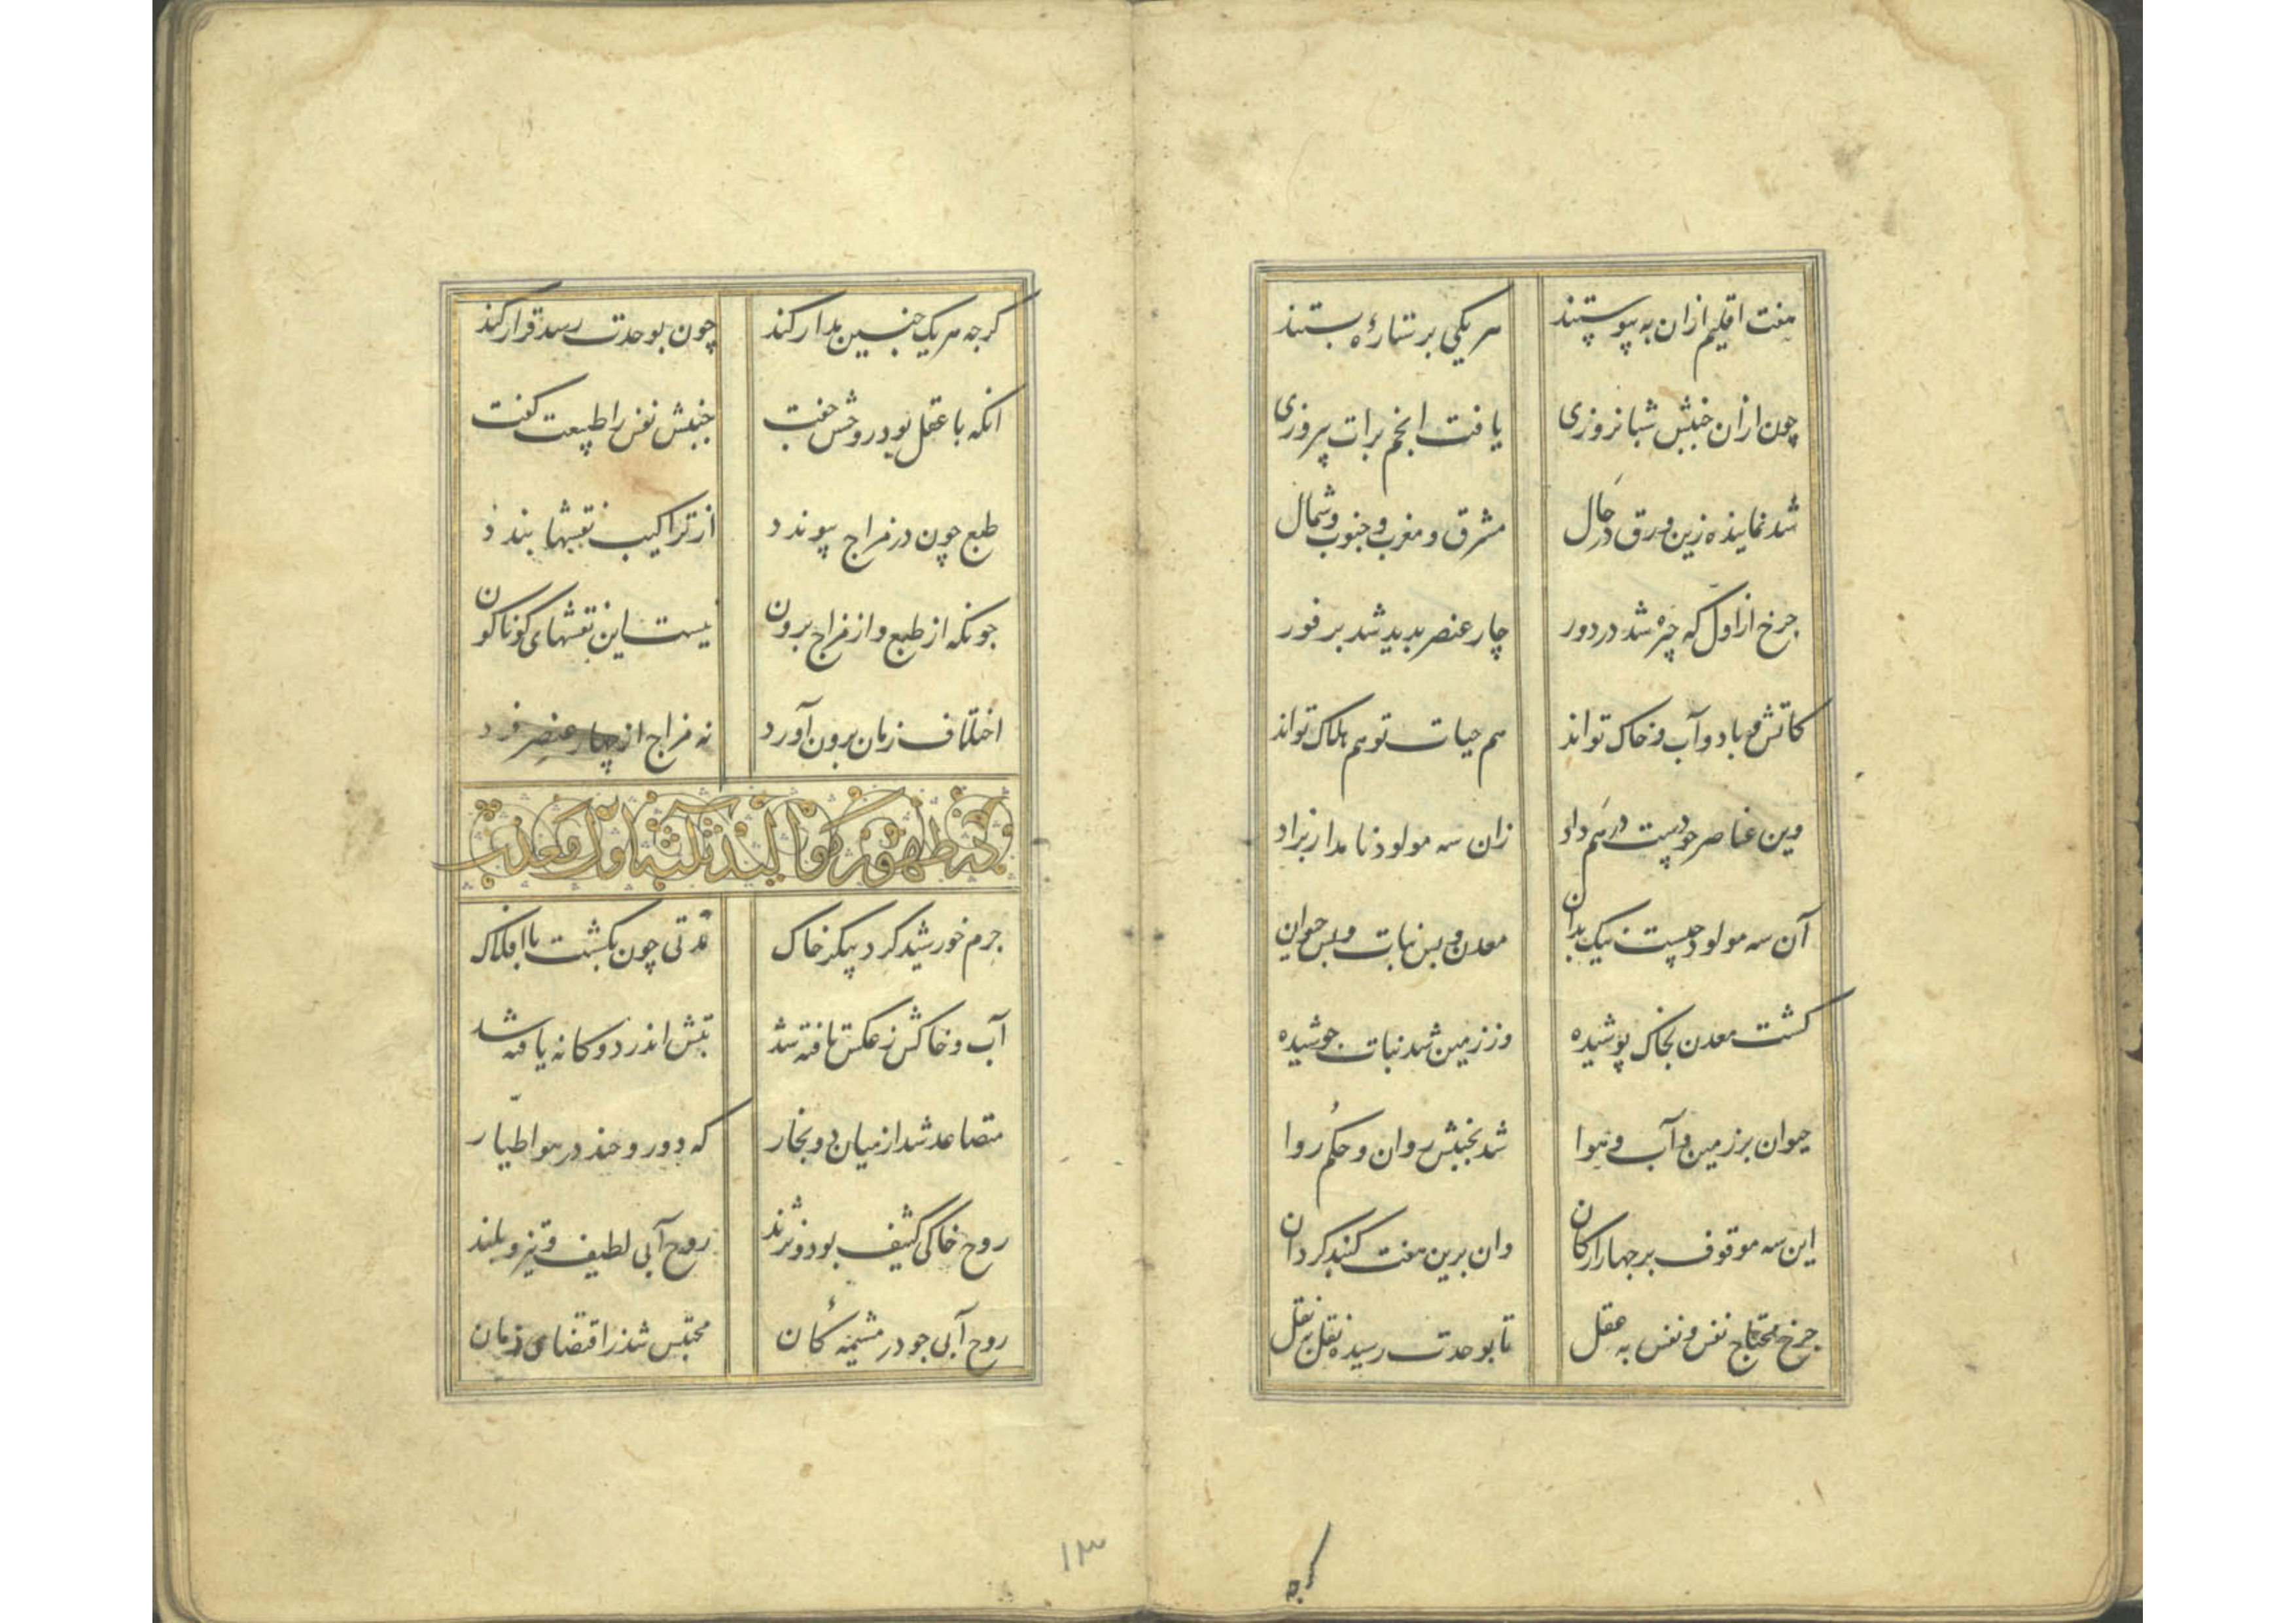 هفت اقلیم ازان به پیوستند هر یکی بر ستارهٔ بستند
چون ازان جنبش شبانروزی یافت انجم برات پیروزی
شد نماینده زین ورق در حال مشرق و مغرب و جنوب و شمال
جرخ از اول که چیره شد در دور چار عنصر بدید شد بر فور
کاتش و باد و آب و خاک تواند هم حیات تو هم هلاک تواند
وین عناصر جو دست در هم داد زان سه مولود نامدار بزاد
آن سه مولود جیست نیک بدان معدن و بس نبات و بس حیوان
کشت معدن بخاک پوشیده وز زمین شد نبات جوشیده
حیوان بر زمین و آب و هوا شد بجنبش روان و حکم روا
این سه موقوف بر جهار ارکان وان برین هفت کنبد کردان
جرخ محتاج نفس و نفس به عقل تا بوحدت رسیذه نقل بنقل
کرجه
کرجه هر یک جنبین مدار کند چون بوحدت رسد قرار کند
انکه با عقل بود روحش جفت جنبش نفس را طبیعت کفت
طبع چون در مزاج پیوندد از تراکیب نقشها بندد
جونکه از طبع و از مزاج برون نیست این نقشهای کوناکون
اختلاف زمان برون آورد نه مزاج از چهار عنصر فرد
در ظهور موالید ثلثه اول معدنیات
جرم خورشید کرد پیکر خاک مدتی چون بکشت با افلاک
آب و خاکش ز عکس تافته شد تبش اندر دوکانه یافته شد
متصاعد شد از میان دو بخار که دو روحند در هوا طیار
روح خاکی کثیف بود و نژند روح آبی لطیف و تیز و بلند
روح آبی جو در مشیمهٔ کان محتبس شد ز اقتضای زمان
۱۳